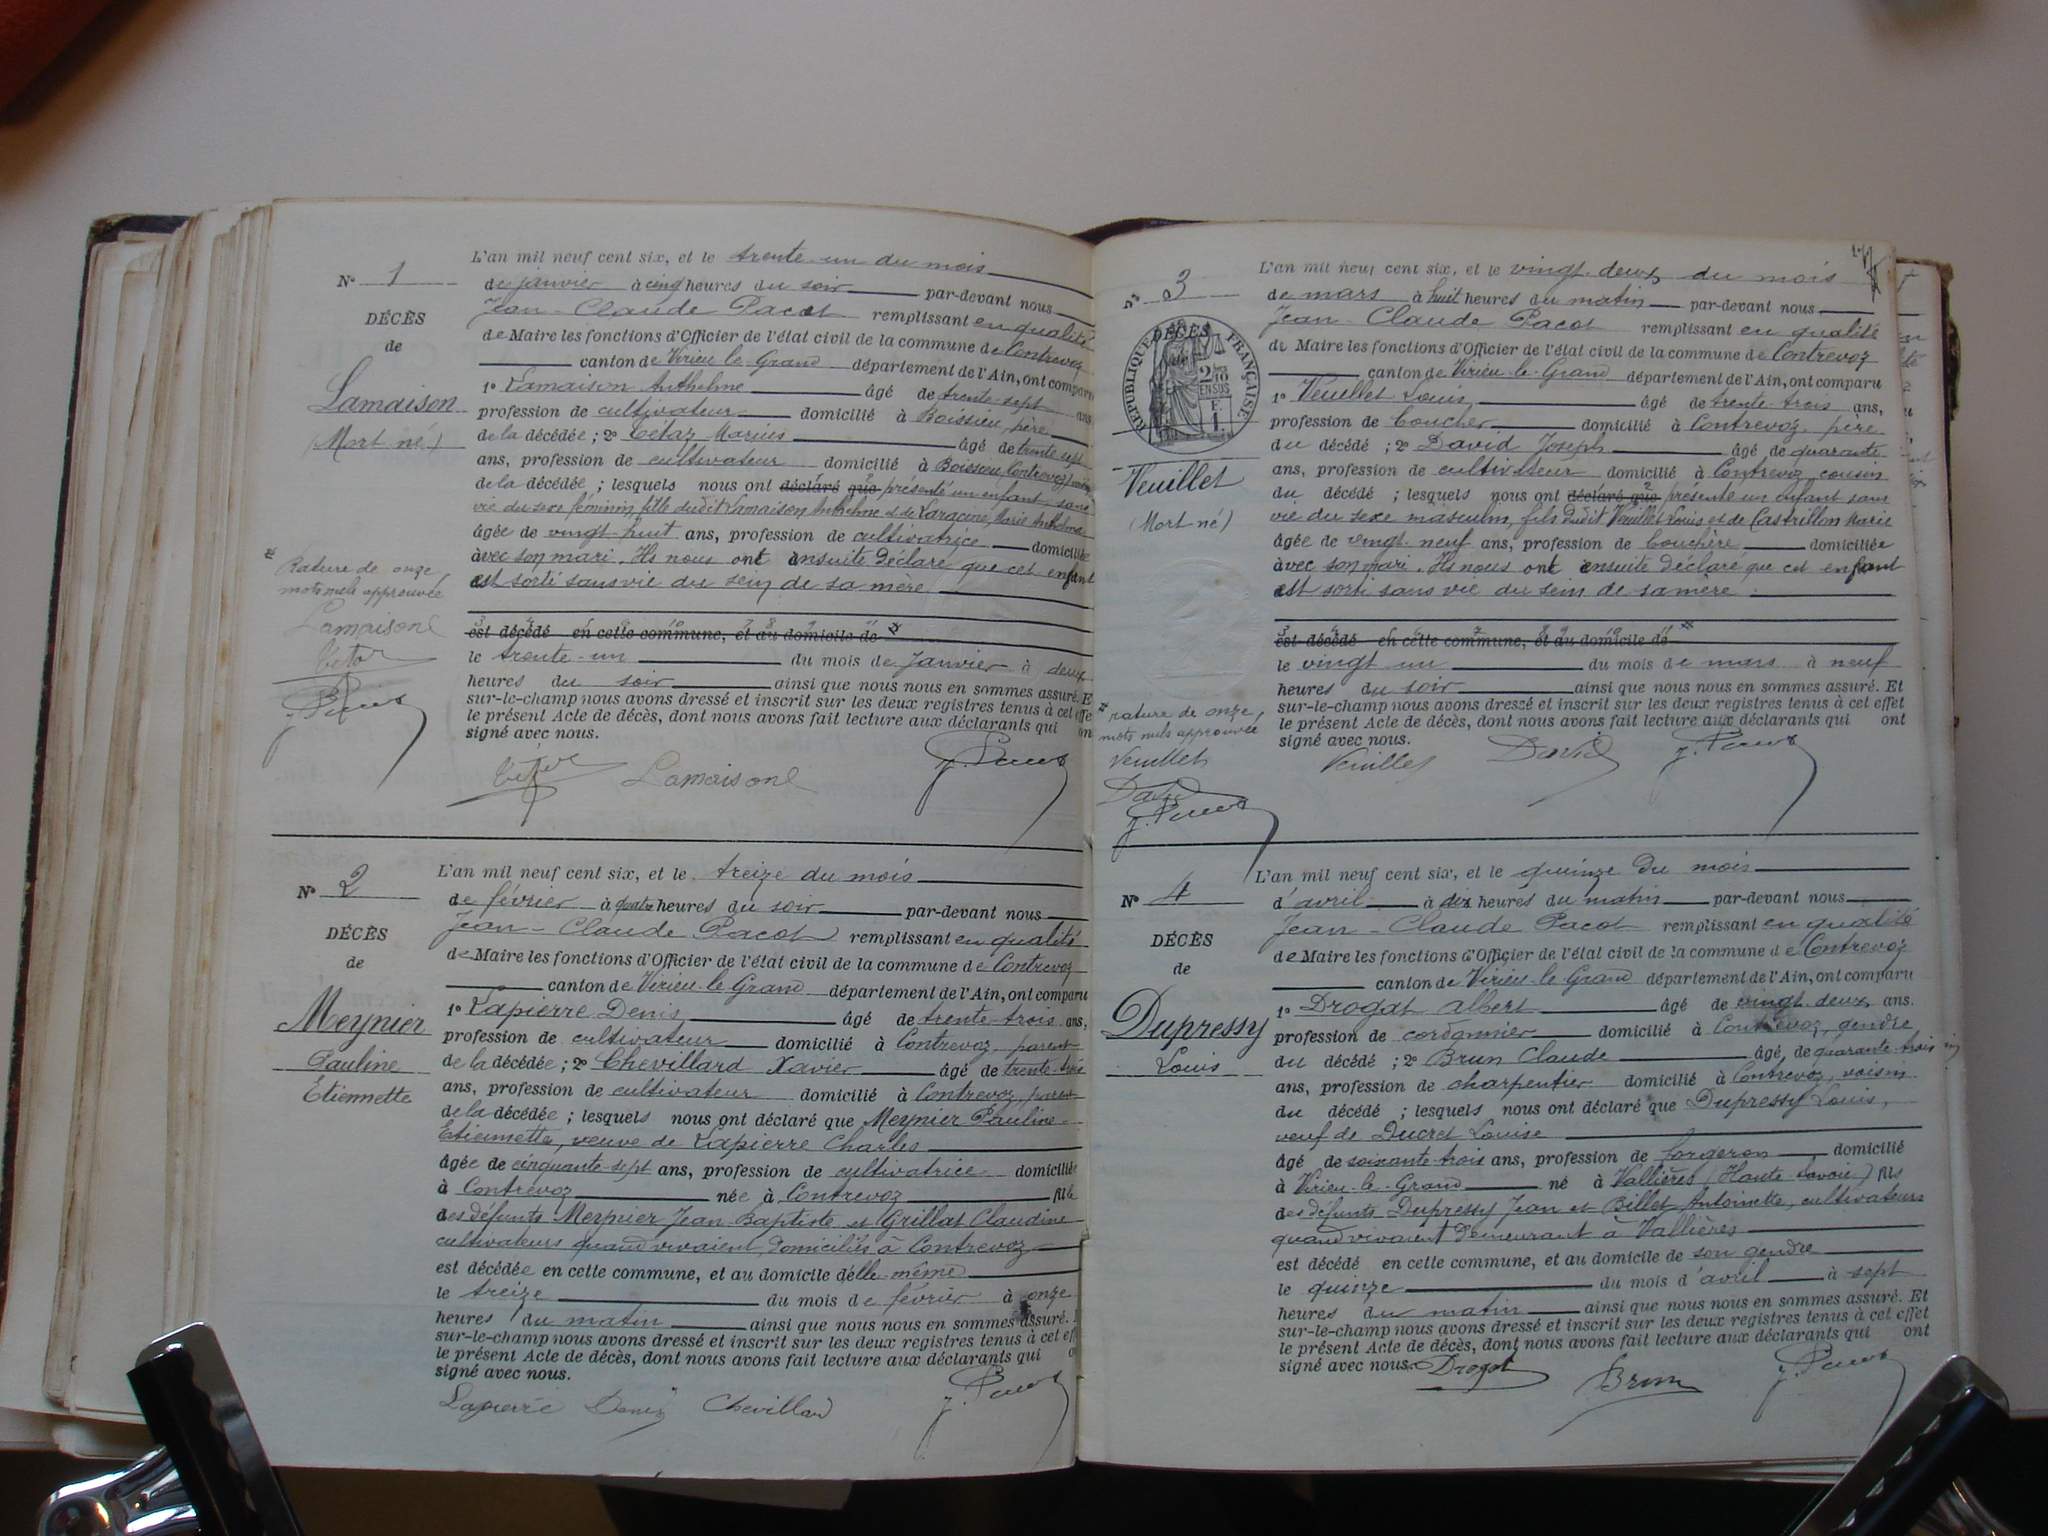 L'an mil neuf cent six, et le trente-un du mois
N° 1
de janvier à cinq heures du soir par-devant nous
Jean-Claude Pacot remplissant en qualité
DÉCÈS
de Maire les fonctions d'Officier de l'état civil de la commune de Contrevoz
de
canton de Virieu-le-Grand département de l'Ain, ont comparu
Lamaison
1° Lamaison Anthelme âgé de trente-sept ans
profession de cultivateur domicilié à Boissieu, père
(Mort né)
de la décédée ; 2° Tétaz Marius âgé de trente sept
ans, profession de cultivateur domicilié à Boissieu (Contrevoz)
de la décédée ; lesquels nous ont déclaré que présenté un enfant sans
vie du sexe féminin, fille dudit Lamaison Anthelme et de Laracine, Marie Anthelme
âgée de vingt-huit ans, profession de cultivatrice domiciliée
avec son mari. Ils nous ont ensuite déclaré que cet enfant
est sorti sans vie du sein de sa mère
Rature de onze
mots nuls approuvée
Lamaison
J. Pacot
est décédé en cette commune, et au domicile de
le trente-un du mois de janvier à deux
heures du soir ainsi que nous nous en sommes assuré. E
sur-le-champ nous avons dressé et inscrit sur les deux registres tenus à cet effe
le présent Acte de décès, dont nous avons fait lecture aux déclarants qui on
signé avec nous.
Lamaison J. Pacot
L'an mil neuf cent six, et le treize du mois
N° 2
de février à quatre heures du soir par-devant nous
Jean-Claude Pacot remplissant en qualité
DÉCÈS
de Maire les fonctions d'Officier de l'état civil de la commune de Contrevoz
de
canton de Virieu-le-Grand département de l'Ain, ont comparu
Meynier
Pauline
Etiennette
1° Lapierre Denis âgé de trente-trois ans,
profession de cultivateur domicilié à Contrevoz, parent
de la décédée ; 2° Chevillard Xavier âgé de trente-trois
ans, profession de cultivateur domicilié à Contrevoz, parent
de la décédée ; lesquels nous ont déclaré que Meynier Pauline
Etiennette, veuve de Lapierre Charles
âgée de cinquante-sept ans, profession de cultivatrice domiciliée
à Contrevoz née à Contrevoz fille
des défunts Meynier Jean-Baptiste et Grillat Claudine
cultivateurs quand vivaient, domiciliés à Contrevoz
est décédée en cette commune, et au domicile d'elle-même
le treize du mois de février à onze
heures du matin ainsi que nous nous en sommes assuré.
sur-le-champ nous avons dressé et inscrit sur les deux registres tenus à cet ef
le présent Acte de décès, dont nous avons fait lecture aux déclarants qui o
signé avec nous.
Lapierre Denis Chevillard J. Pacot
L'an mil neuf cent six, et le vingt-deux du mois
N° 3
de mars à huit heures du matin par-devant nous
Jean-Claude Pacot remplissant en qualité
DÉCÈS
de
RÉPUBLIQUE FRANÇAISE
de Maire les fonctions d'Officier de l'état civil de la commune de Contrevoz
canton de Virieu-le-Grand département de l'Ain, ont comparu
1° Veuillet Louis âgé de trente-trois ans,
profession de boucher domicilié à Contrevoz, père
du décédé ; 2° David Joseph âgé de quarante
Veuillet
(Mort-né)
ans, profession de cultivateur domicilié à Contrevoz, cousin
du décédé ; lesquels nous ont déclaré que présenté un enfant sans
vie du sexe masculin, fils dudit Veuillet Louis et de Castrillon Marie
âgée de vingt-neuf ans, profession de bouchère domiciliée
avec son mari. Ils nous ont ensuite déclaré que cet enfant
est sorti sans vie du sein de sa mère
est décédé en cette commune, et au domicile de
le vingt-un du mois de mars à neuf
heures du soir ainsi que nous nous en sommes assuré. Et
sur-le-champ nous avons dressé et inscrit sur les deux registres tenus à cet effet
le présent Acte de décès, dont nous avons fait lecture aux déclarants qui ont
signé avec nous.
rature de onze,
mots nuls approuvée
Veuillet
David
J. Pacot
Veuillet David J. Pacot
L'an mil neuf cent six, et le quinze du mois
N° 4
d'avril à dix heures du matin par-devant nous
Jean-Claude Pacot remplissant en qualité
DÉCÈS
de Maire les fonctions d'Officier de l'état civil de la commune de Contrevoz
de
canton de Virieu-le-Grand département de l'Ain, ont comparu
Dupressy
Louis
1° Drogat Albert âgé de vingt-deux ans.
profession de cordonnier domicilié à Contrevoz, gendre
du décédé ; 2° Brun Claude âgé de quarante-trois
ans, profession de charpentier domicilié à Contrevoz, voisin
du décédé ; lesquels nous ont déclaré que Dupressy Louis,
veuf de Ducret Louise
âgé de soixante-trois ans, profession de forgeron domicilié
à Virieu-le-Grand né à Vallières (Haute Savoie) fils
des défunts Dupressy Jean et Billet Antoinette, cultivateurs
quand vivaient demeurant à Vallières
est décédé en cette commune, et au domicile de son gendre
le quinze du mois d'avril à sept
heures du matin ainsi que nous nous en sommes assuré. Et
sur-le-champ nous avons dressé et inscrit sur les deux registres tenus à cet effet
le présent Acte de décès, dont nous avons fait lecture aux déclarants qui ont
signé avec nous.
Drogat Brun J. Pacot